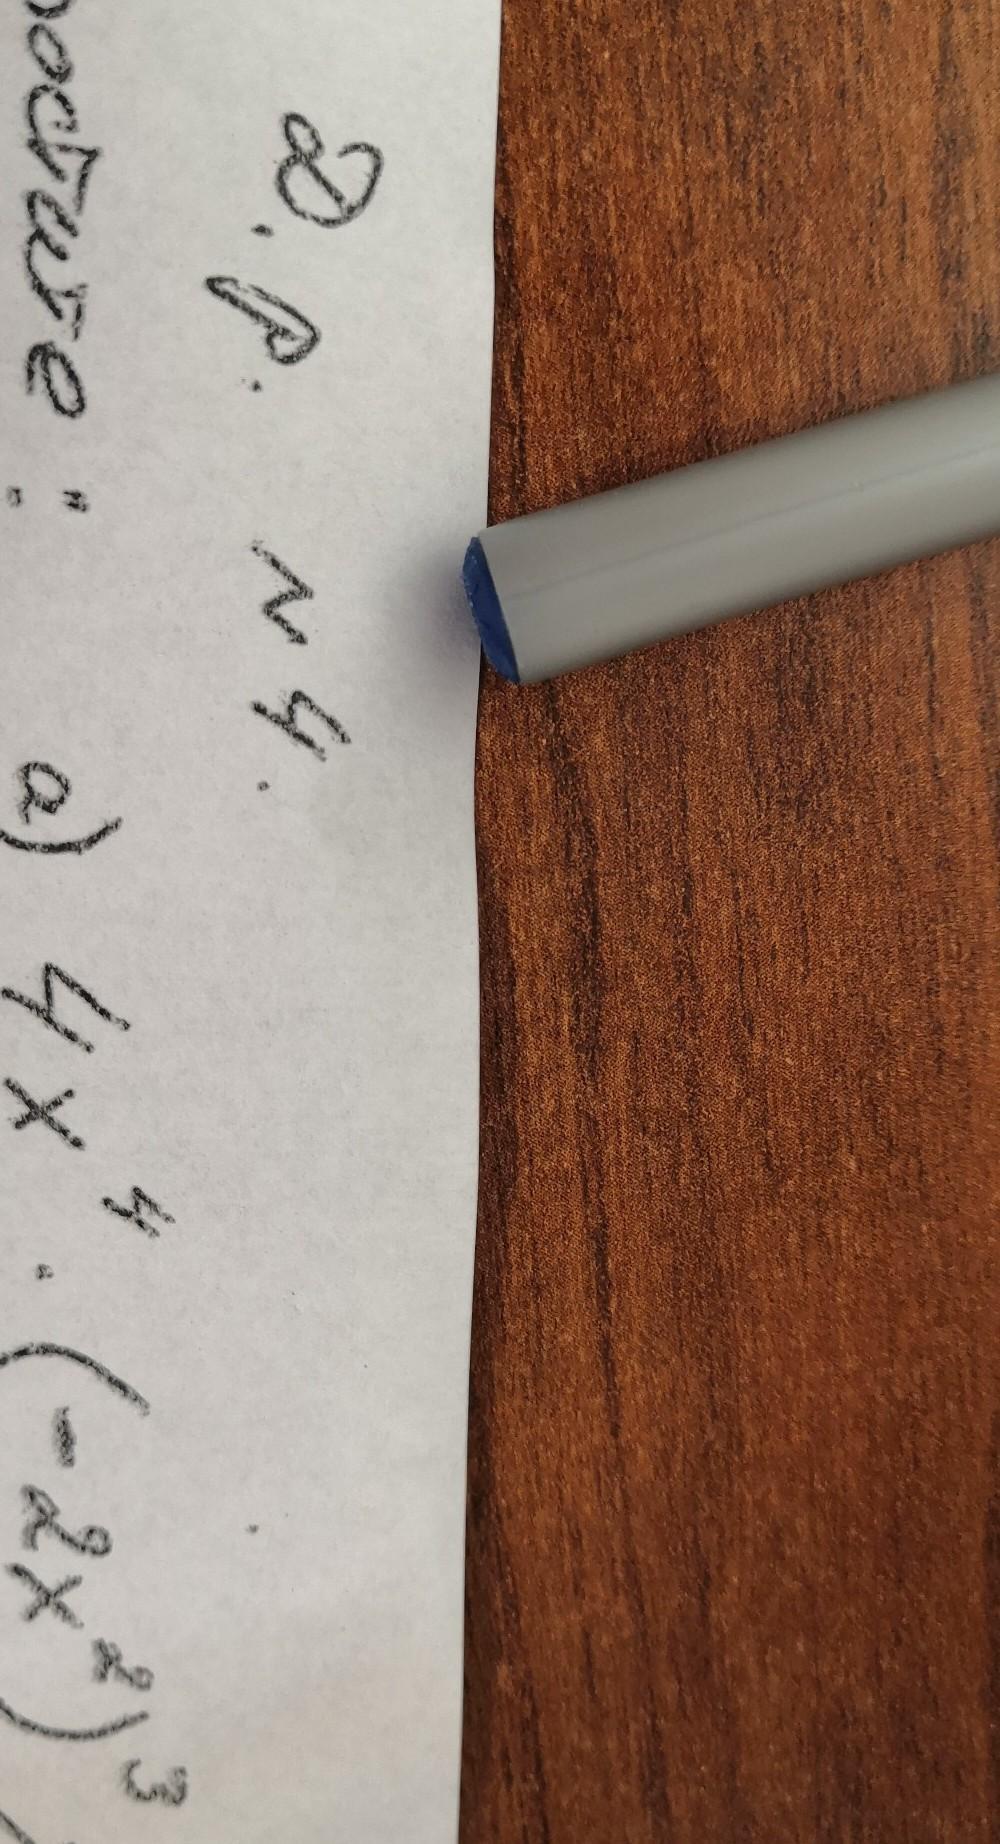 Д. р. N 4.
остите: а) 4x⁴ · (-2x²)³